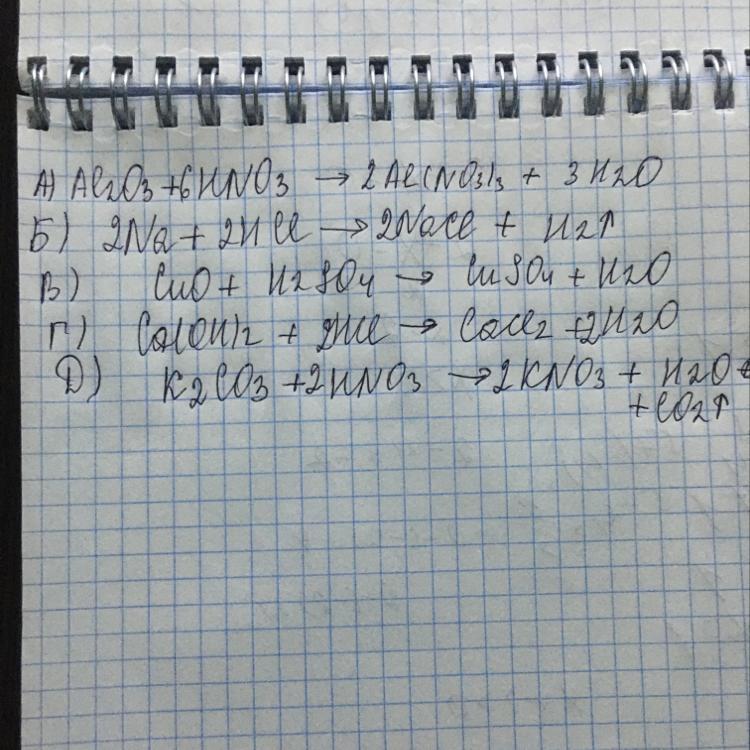 А) Al2O3 + 6HNO3 → 2Al(NO3)3 + 3H2O
Б) 2Na + 2HCl → 2NaCl + H2↑
В) CuO + H2SO4 → CuSO4 + H2O
Г) Ca(OH)2 + 2HCl → CaCl2 + 2H2O
Д) K2CO3 + 2HNO3 → 2KNO3 + H2O +
+ CO2↑